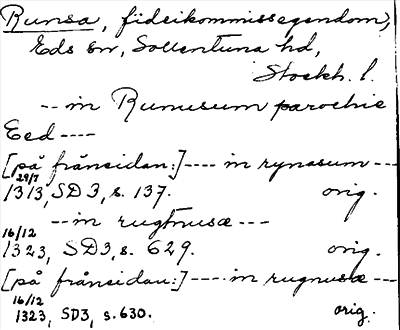 Runsa, fideikommissegendom,
Eds sn, Sollentuna hd,
Stockh. l.
-- in Runusum parochie
Eed ----
[på frånsidan:] ---- in rynasum ---
29/7
1313, SD3, s. 137. orig.
-- in rugnusæ ---
16/12
1323, SD3, s. 629. orig.
[på frånsidan:] ---- in rugnusæ ---
16/12
1323, SD3, s. 630. orig.